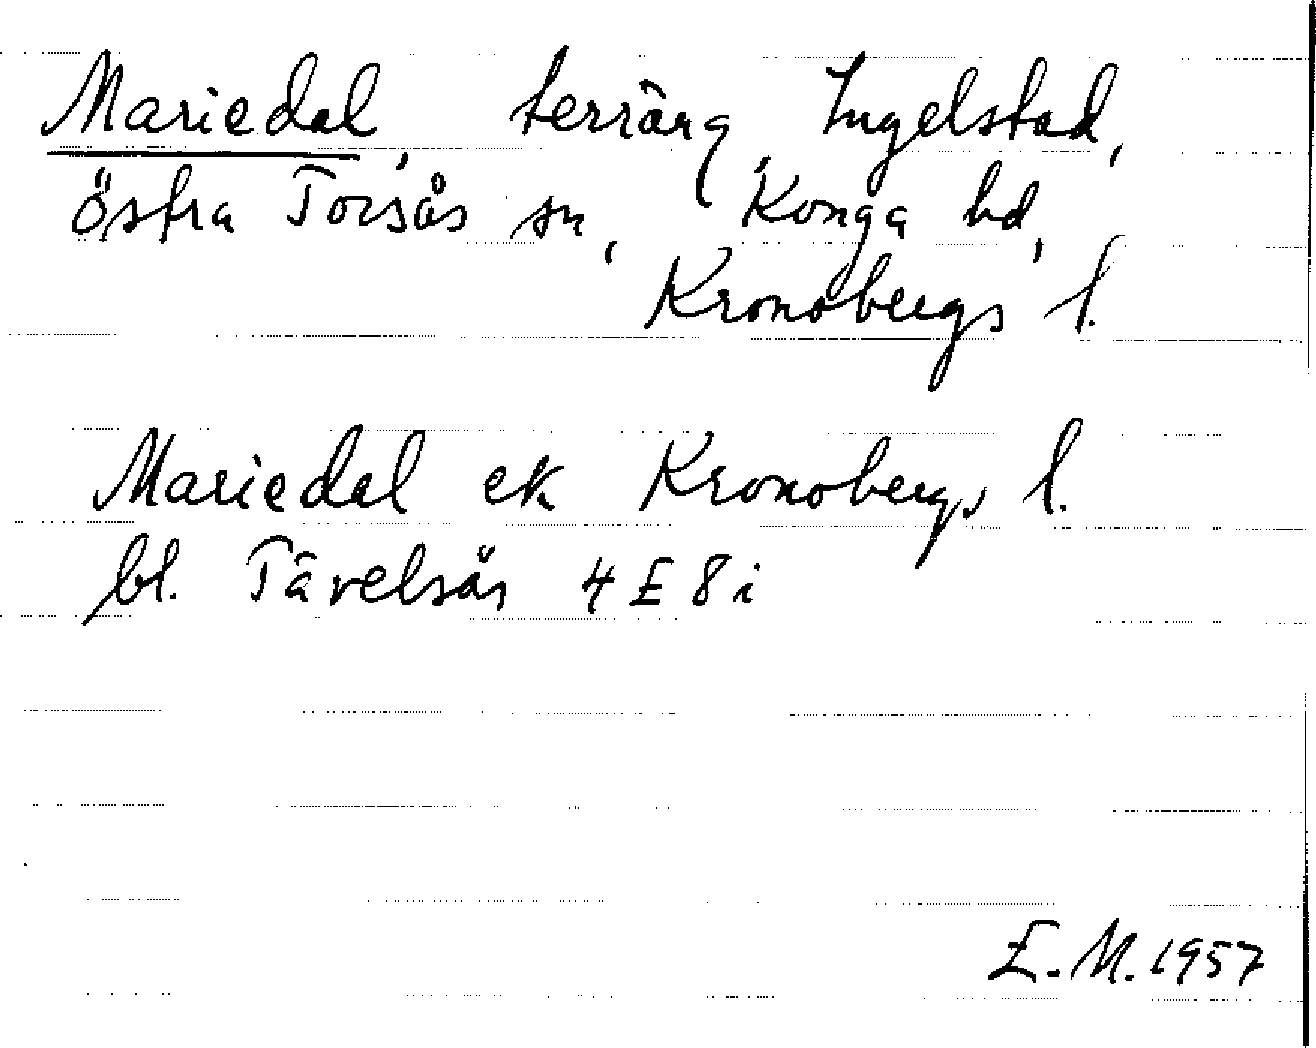 Mariedal, terräng, Ingelstad,
östra Torsås sn, Konga hd,
Kronobergs l.
Mariedal ek Kronobergs l.
bl. Tävelsås 4E8i
E.M. 1957